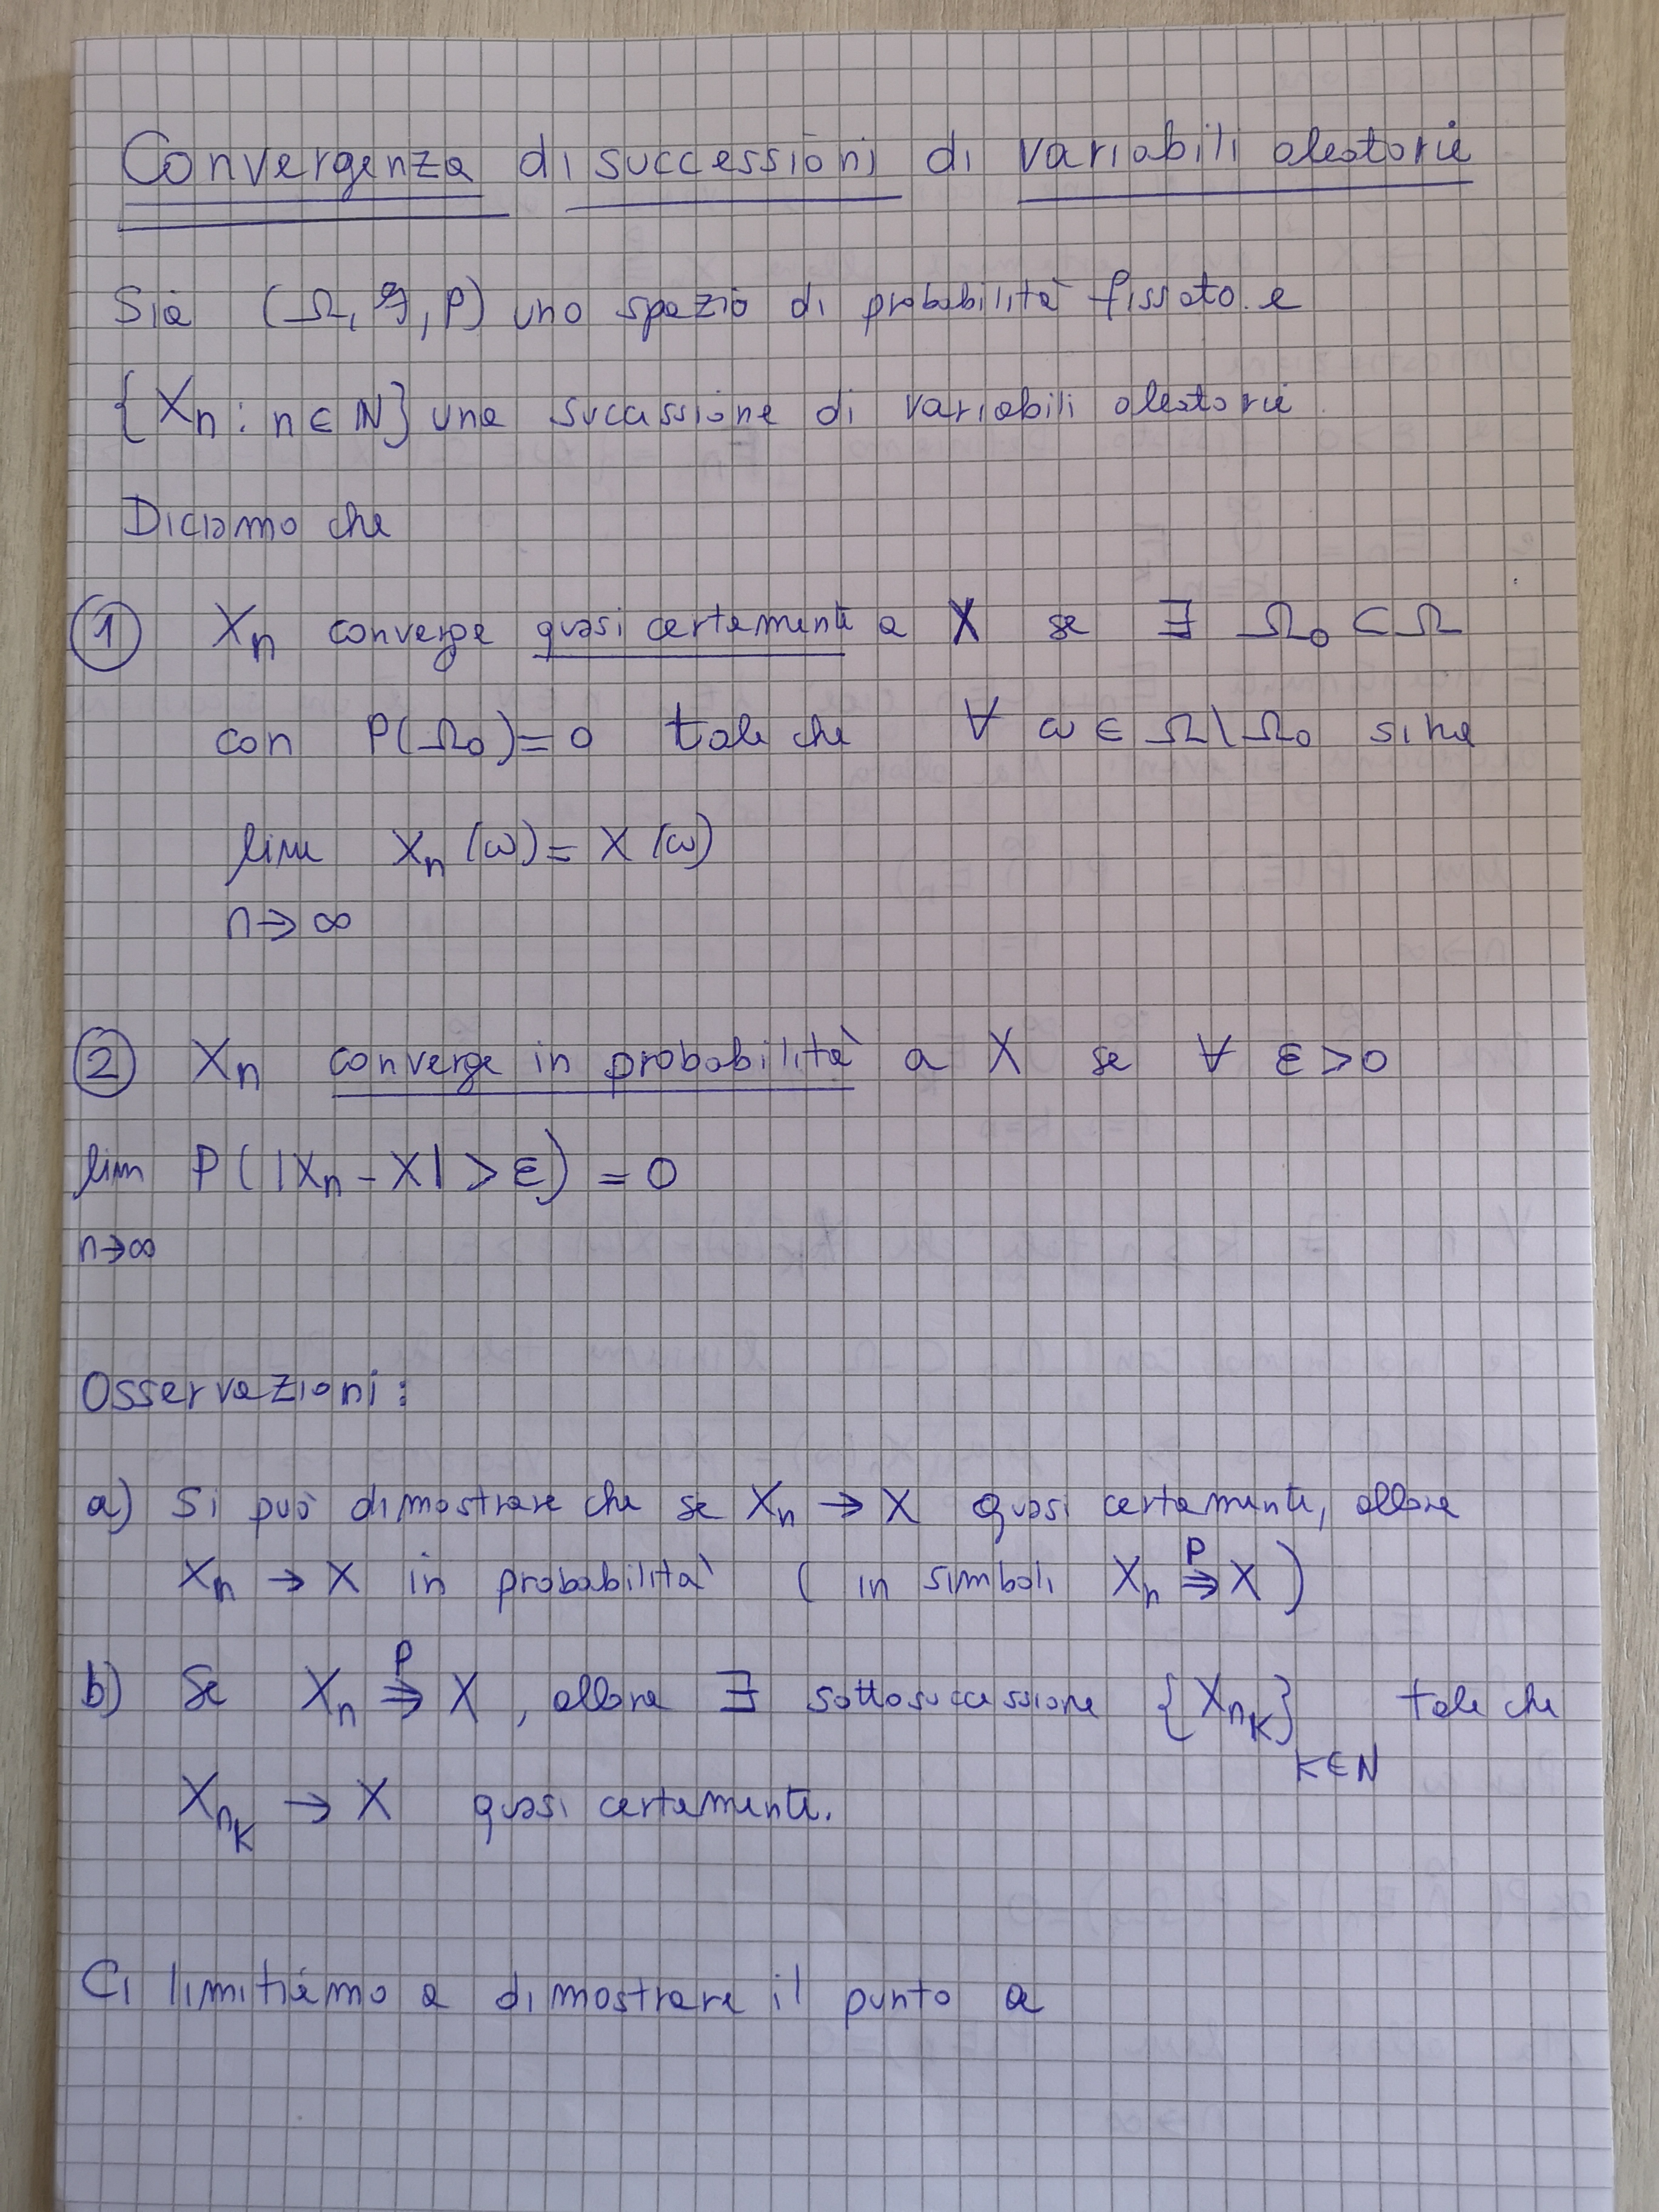 Convergenza di successioni di variabili aleatorie
Sia (Ω, 𝒢, P) uno spazio di probabilità fissato e
{Xn : n ∈ ℕ} una successione di variabili aleatorie
Diciamo che
① Xn converge quasi certamente a X se ∃ Ω₀ ⊂ Ω
con P(Ω₀) = 0 tale che ∀ ω ∈ Ω\Ω₀ si ha
lim Xn (ω) = X (ω)
n→∞
② Xn converge in probabilità a X se ∀ ε > 0
lim P(|Xn - X| > ε) = 0
n→∞
Osservazioni:
a) Si può dimostrare che se Xn → X quasi certamente, allora
Xn → X in probabilità (in simboli Xn ⇒ᴾ X)
b) Se Xn ⇒ᴾ X, allora ∃ sottosuccessione {Xnₖ} k∈ℕ tale che
Xnₖ → X quasi certamente.
Ci limitiamo a dimostrare il punto a